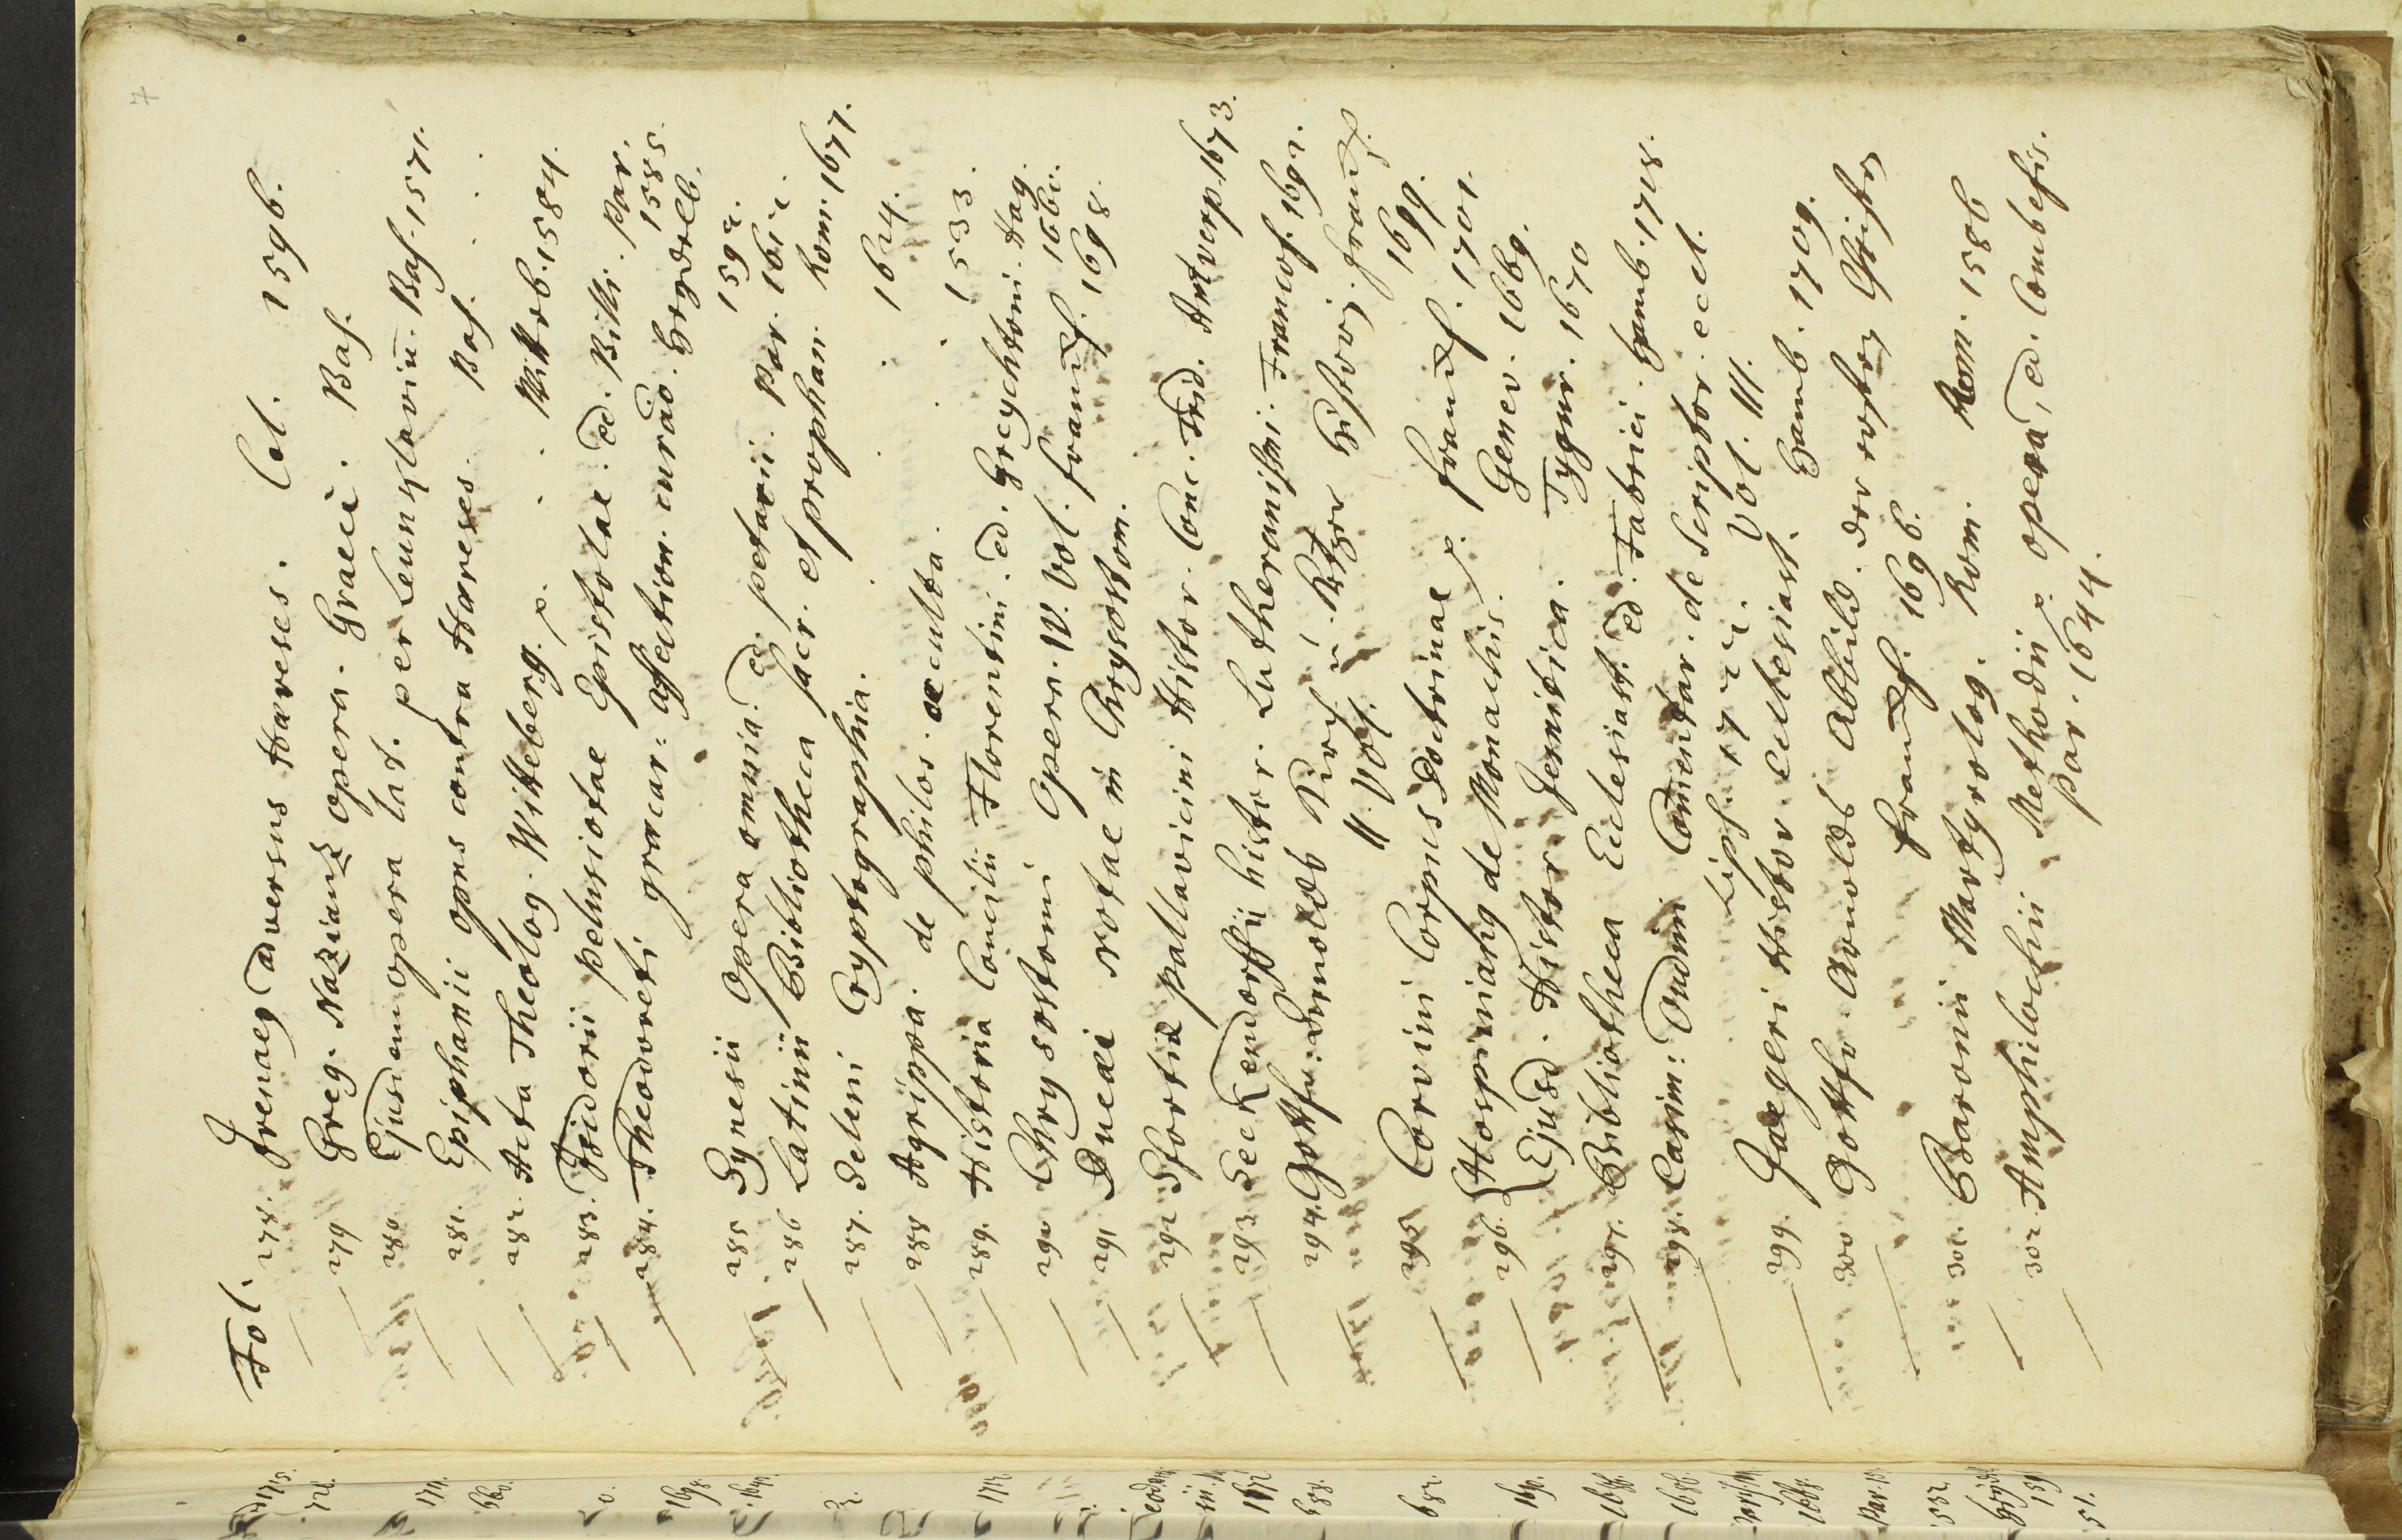 7
Fol.
278. Irenaeg adversus Haereses. Col. 1596.
279 Greg. Nazianz opera. Graeci. Bas.
280 Ejusdem opera lat. per Leunclaviū. Bas. 1571.
281. Epiphanii opus contra Haereses. Bas. . .
282. Acta Theolog. Witeberg. p. . . Witeb. 1584.
283. Isidorii pelusiotae Epistolae. ed. Billi. Par. 1585.
284. Theodoreti graecar: affection. curatio. Heydelb. 1592.
285 Synesii Opera omnia. ed. petavii. Par. 1612.
286 Latinii Bibliotheca sacr. et prophan. Rom. 1677.
287. Seleni Cryptographia. . . 1624.
288 Agrippa. de philos. occulta. . . 1533.
289. Historia Concilii Florentini. ed. Creychtoni. Hag. 1660.
290 Chrysostomi Opera. IV. Vol. francof. 1698.
291 Ducaei notae in Chrysostom.
292 Sfortiae pallavicini Histor. Conc. Trid. Antverp. 1673.
293 Seckendorffii histor. Lutheranismi. Francof. 1692.
294. Gottfr: Arnolds Kirch. u. Ketzer Histori. franckf. 1699.
II. Vol.
295 Corvini Corpus Doctrinae p. franckf. 1701.
296. Hospiniang de Monachis. Genev. 1669.
Ejusd. Histor Jesuitica. Tygur. 1670
297. Bibliotheca Ecclesiast. ed. Fabrici. Hamb. 1718.
298. Casim: Oudini Com̄entar. de Scriptor. eccl.
Lips. 1722. Vol. III.
299. Jaegeri Histor. Ecclesiast. Hamb. 1709.
300 Gottfr. Arnolds Abbild. der ersten Christen
franckf. 1696.
301. Baronii Martyrolog. Rom. Rom. 1586
302 Amphilochii Methodii p. opera, ed. Combefis.
Par. 1644.